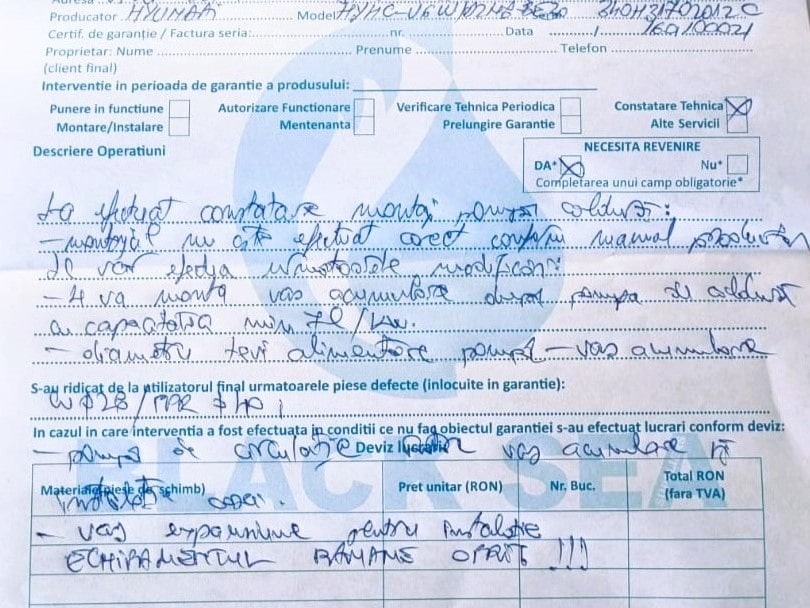 Producator HYUNDAI Model
Certif. de garanție / Factura seria: nr. Data
Proprietar: Nume Prenume Telefon
(client final)
Interventie in perioada de garantie a produsului:
Punere in functiune Autorizare Functionare Verificare Tehnica Periodica Constatare Tehnica
Montare/Instalare Mentenanta Prelungire Garantie Alte Servicii
Descriere Operatiuni NECESITA REVENIRE
DA* Nu*
Completarea unui camp obligatorie*
efectuat constatare montaj pompă căldură:
- montajul nu este efectuat corect conform manual producător
Se vor efectua următoarele modificări:
- va monta vas acumulare după pompa de căldură
cu capacitatea min 7l/kw.
- diametru tevi alimentare pompă - vas acumulare
S-au ridicat de la utilizatorul final urmatoarele piese defecte (inlocuite in garantie):
/PPR
In cazul in care interventia a fost efectuata in conditii ce nu fac obiectul garantiei s-au efectuat lucrari conform deviz:
- pompă de circulație vas acumulare și
Deviz lucrari
BLACK SEA
Materiale(piese de schimb) Pret unitar (RON) Nr. Buc. Total RON
(fara TVA)
instalație
- vas expansiune pentru instalație
ECHIPAMENTUL RĂMÂNE OPRIT !!!